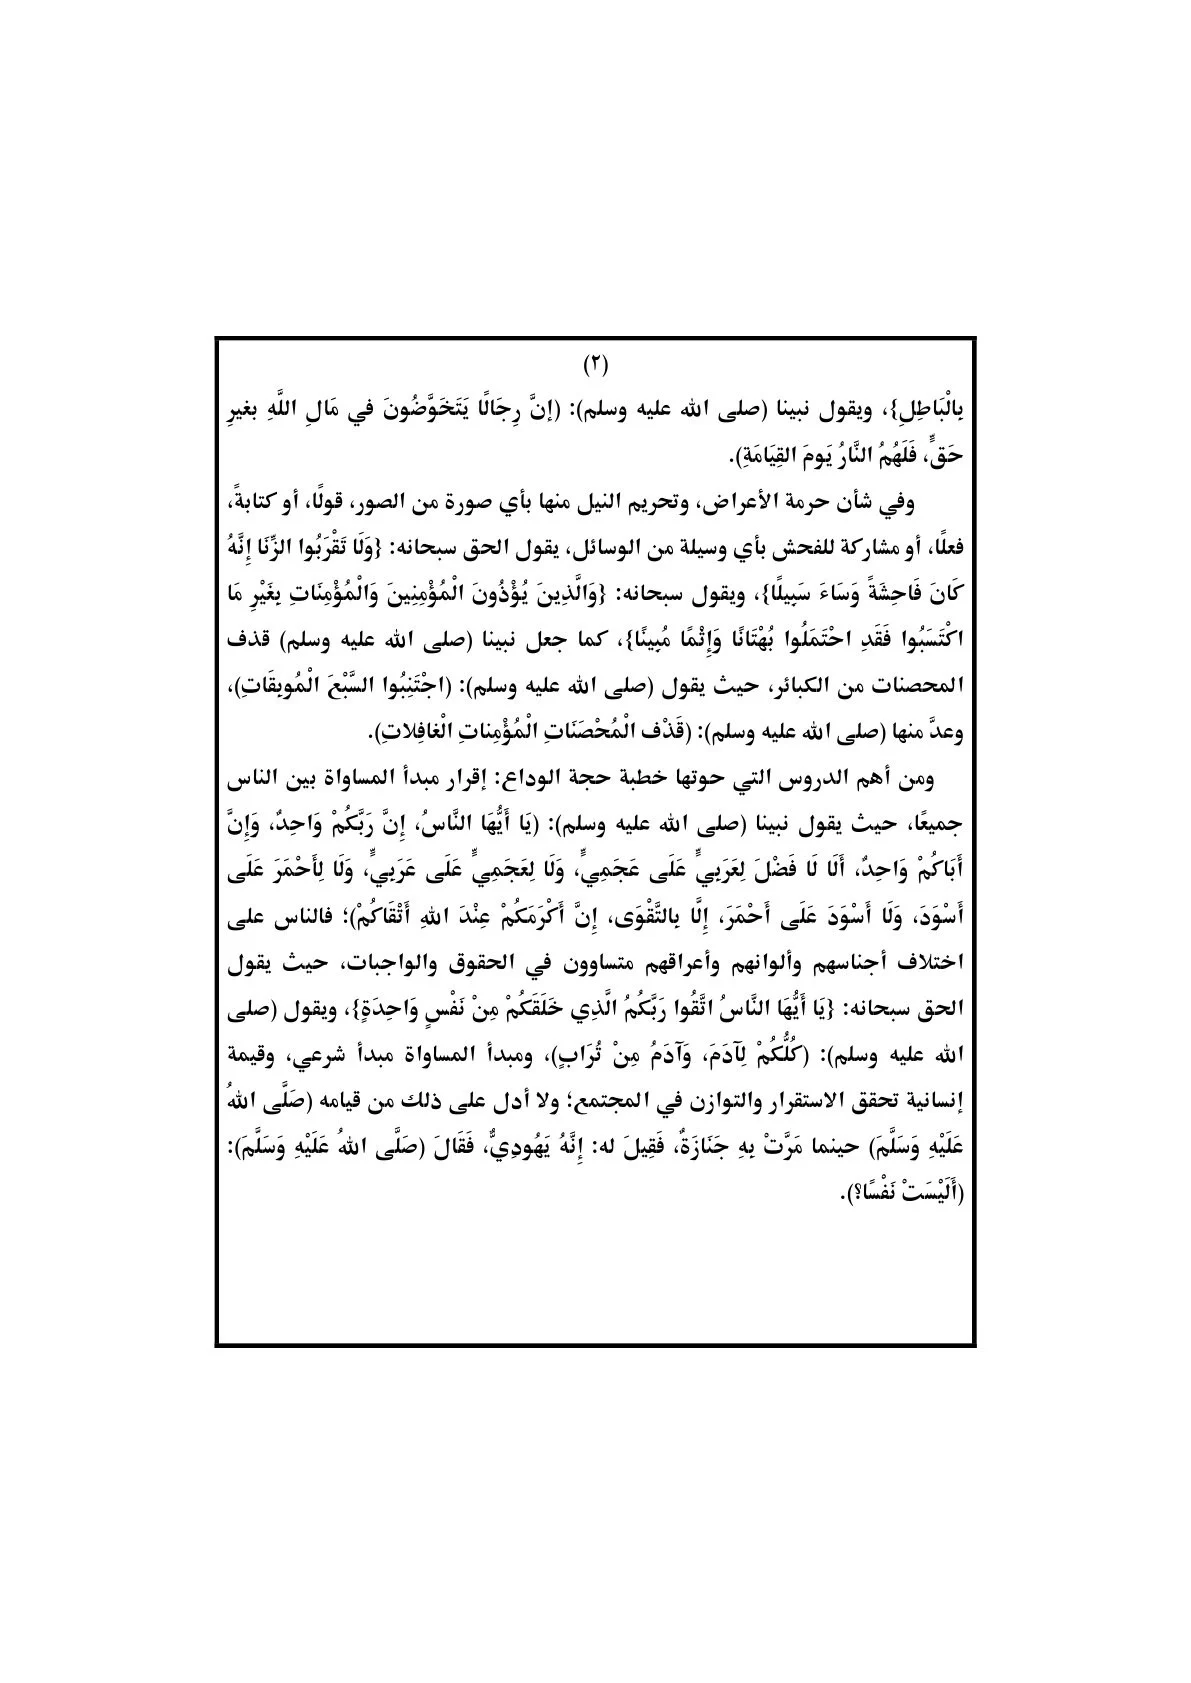 (٢)
بِالْبَاطِلِ}، ويقول نبينا (صلى الله عليه وسلم): (إنَّ رِجَالًا يَتَخَوَّضُونَ في مَالِ اللَّهِ بغيرِ
حَقٍّ، فَلَهُمُ النَّارُ يَومَ القِيَامَةِ).
وفي شأن حرمة الأعراض، وتحريم النيل منها بأي صورة من الصور، قولًا، أو كتابةً،
فعلًا، أو مشاركة للفحش بأي وسيلة من الوسائل، يقول الحق سبحانه: {وَلَا تَقْرَبُوا الزِّنَا إِنَّهُ
كَانَ فَاحِشَةً وَسَاءَ سَبِيلًا}، ويقول سبحانه: {وَالَّذِينَ يُؤْذُونَ الْمُؤْمِنِينَ وَالْمُؤْمِنَاتِ بِغَيْرِ مَا
اكْتَسَبُوا فَقَدِ احْتَمَلُوا بُهْتَانًا وَإِثْمًا مُبِينًا}، كما جعل نبينا (صلى الله عليه وسلم) قذف
المحصنات من الكبائر، حيث يقول (صلى الله عليه وسلم): (اجْتَنِبُوا السَّبْعَ الْمُوبِقَاتِ)،
وعدَّ منها (صلى الله عليه وسلم): (قَذْف الْمُحْصَنَاتِ الْمُؤْمِناتِ الْغافِلاتِ).
ومن أهم الدروس التي حوتها خطبة حجة الوداع: إقرار مبدأ المساواة بين الناس
جميعًا، حيث يقول نبينا (صلى الله عليه وسلم): (يَا أَيُّهَا النَّاسُ، إِنَّ رَبَّكُمْ وَاحِدٌ، وَإِنَّ
أَبَاكُمْ وَاحِدٌ، أَلَا لَا فَضْلَ لِعَرَبِيٍّ عَلَى عَجَمِيٍّ، وَلَا لِعَجَمِيٍّ عَلَى عَرَبِيٍّ، وَلَا لِأَحْمَرَ عَلَى
أَسْوَدَ، وَلَا أَسْوَدَ عَلَى أَحْمَرَ، إِلَّا بِالتَّقْوَى، إِنَّ أَكْرَمَكُمْ عِنْدَ اللهِ أَتْقَاكُمْ)؛ فالناس على
اختلاف أجناسهم وألوانهم وأعراقهم متساوون في الحقوق والواجبات، حيث يقول
الحق سبحانه: {يَا أَيُّهَا النَّاسُ اتَّقُوا رَبَّكُمُ الَّذِي خَلَقَكُمْ مِنْ نَفْسٍ وَاحِدَةٍ}، ويقول (صلى
الله عليه وسلم): (كُلُّكُمْ لِآدَمَ، وَآدَمُ مِنْ تُرَابٍ)، ومبدأ المساواة مبدأ شرعي، وقيمة
إنسانية تحقق الاستقرار والتوازن في المجتمع؛ ولا أدل على ذلك من قيامه (صَلَّى اللهُ
عَلَيْهِ وَسَلَّمَ) حينما مَرَّتْ بِهِ جَنَازَةٌ، فَقِيلَ له: إِنَّهُ يَهُودِيٌّ، فَقَالَ (صَلَّى اللهُ عَلَيْهِ وَسَلَّمَ):
(أَلَيْسَتْ نَفْسًا؟).